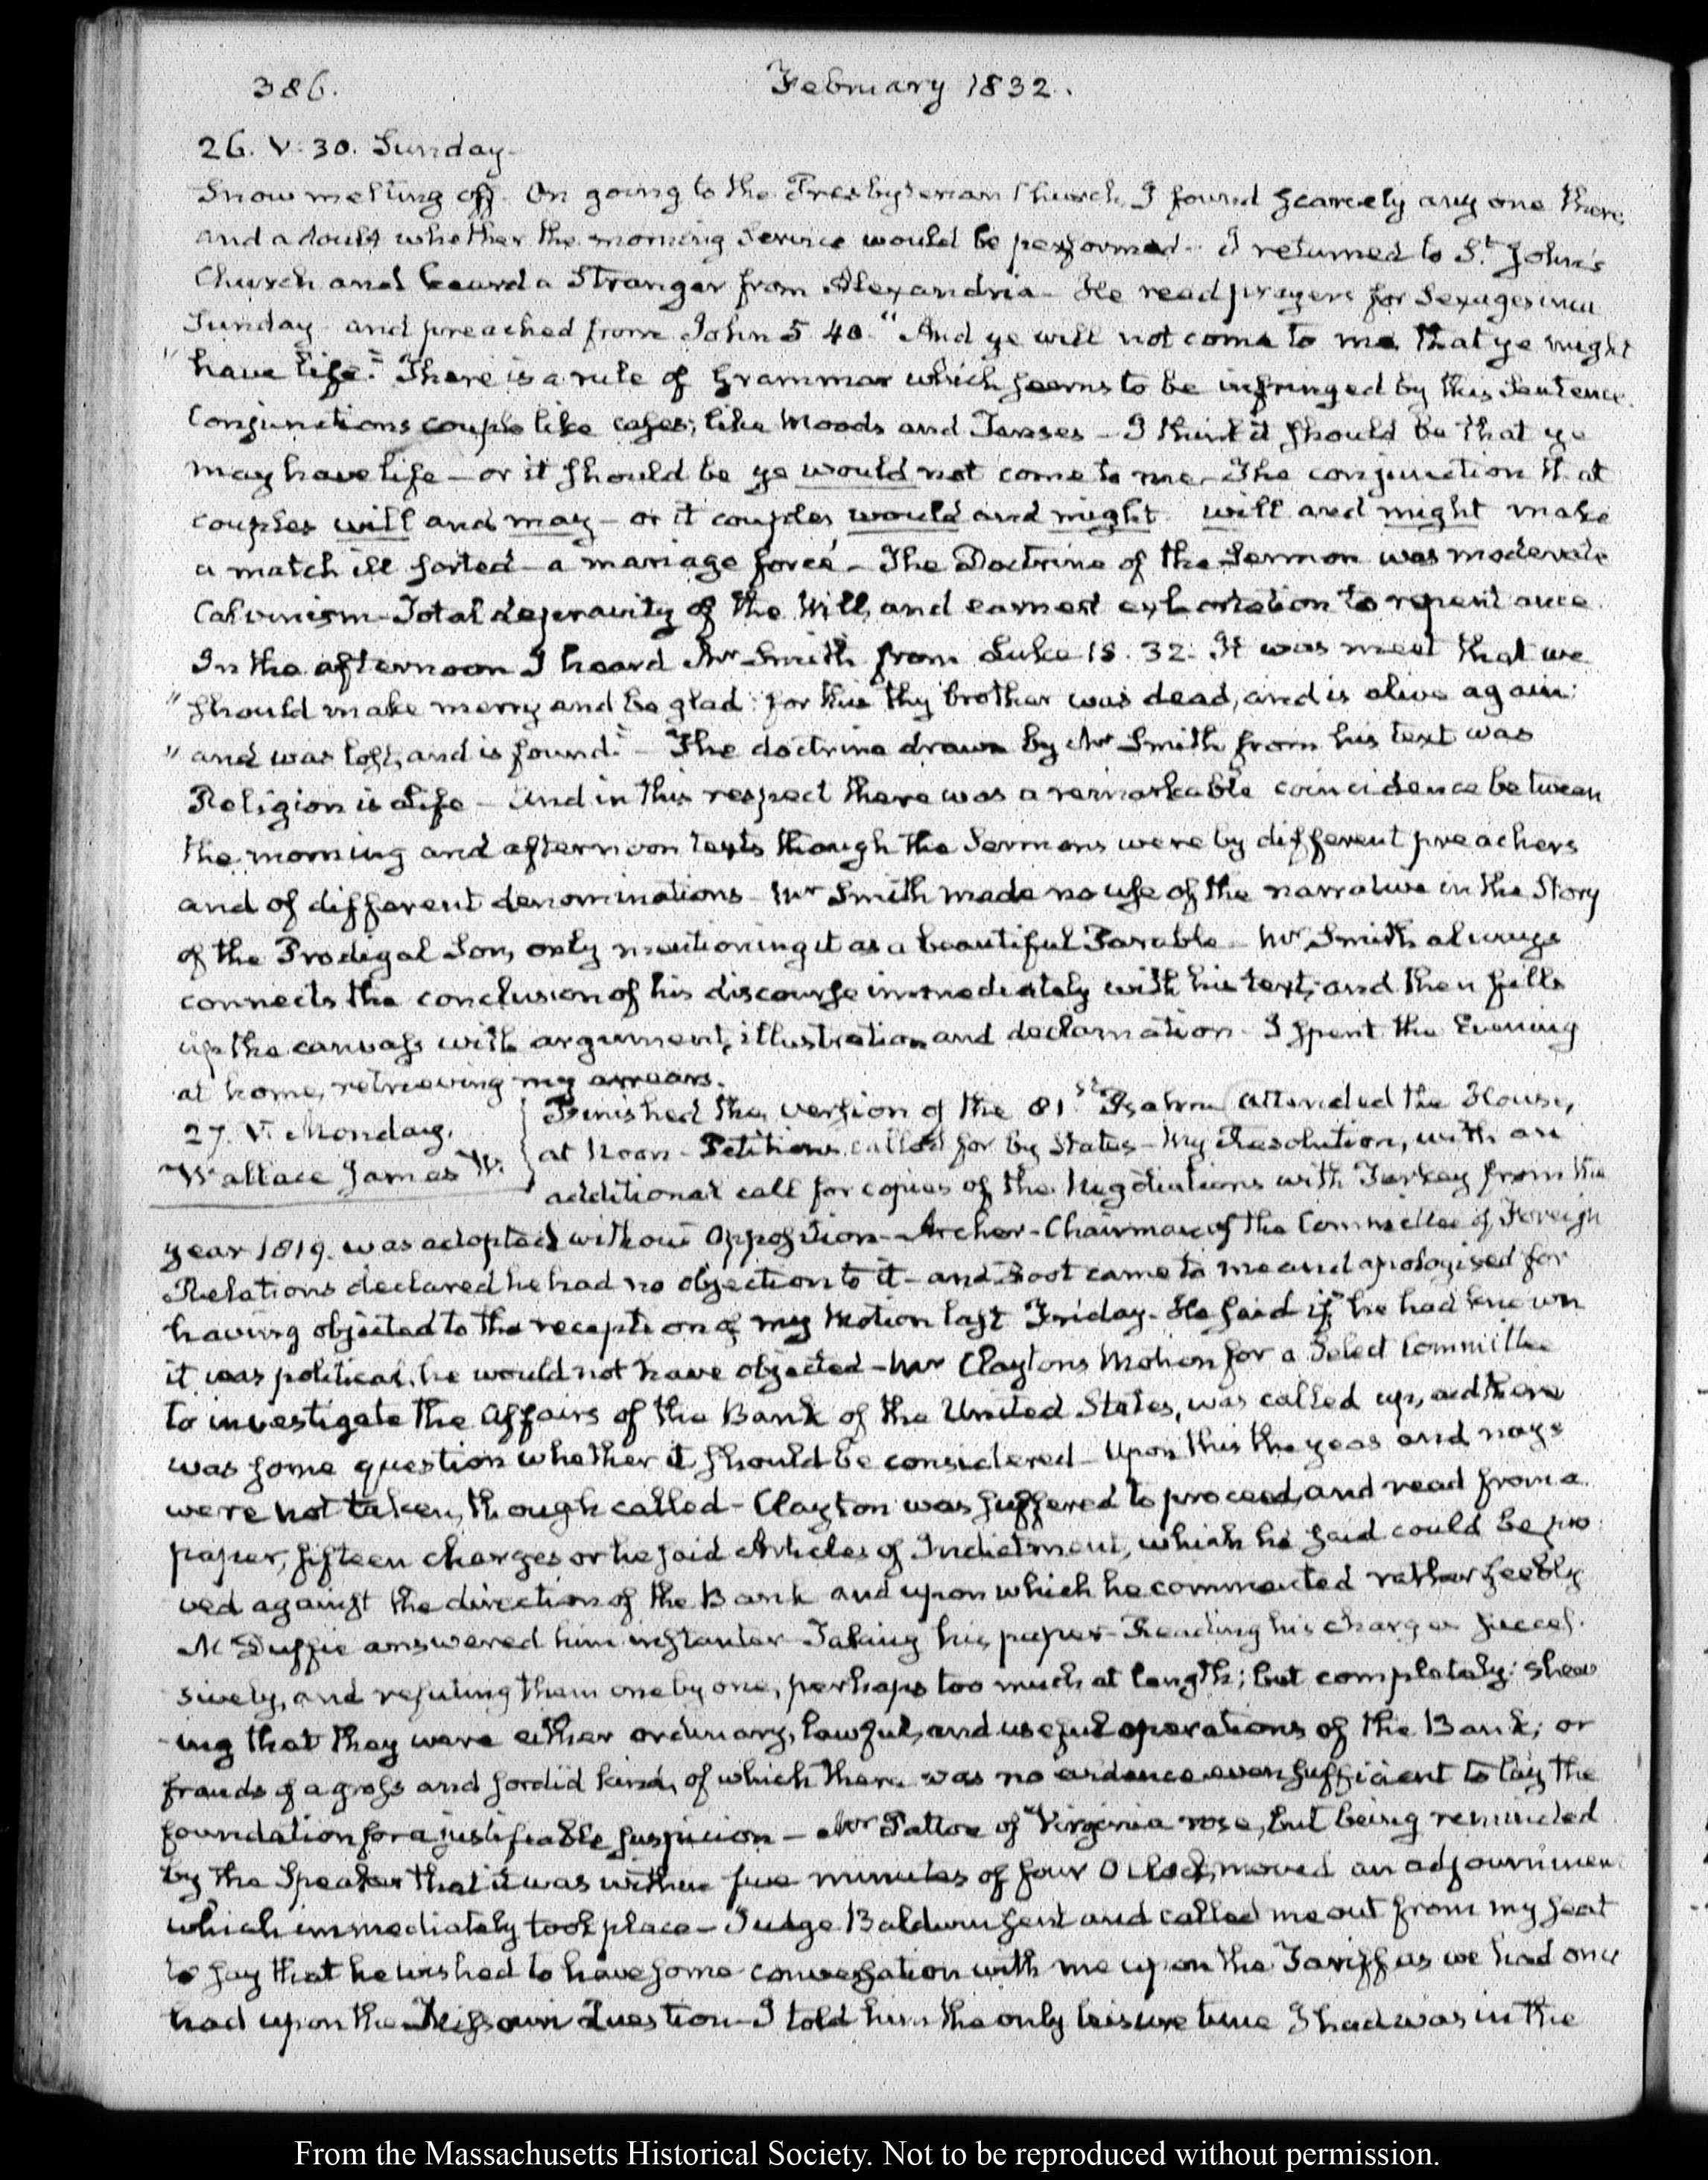 386.
February 1832.
26. V: 30. Sunday-
Snow melting off. On going to the Presbyterian Church, I found scarcely any one there,
and a doubt whether the morning Service would be performed- I returned to St. John's
Church and heard a Stranger from Alexandria- He read prayers for Sexagesima
Sunday and preached from John 5 40. "And ye will not come to me that ye might
" have life." There is a rule of Grammar which seems to be infringed by this Sentence.
Conjunctions couple like cases; like Moods and Tenses- I think it should be that ye
may have life- or it should be ye would not come to me- The conjunction that
couples will and may- or it couples would and might. will and might make
a match ill sorted- a mariage forcé- The Doctrine of the Sermon was moderate
Calvinism- Total depravity of the Will, and earnest exhortation to repentance.
In the afternoon I heard Mr Smith from Luke 15. 32. It was meet that we
" should make merry and be glad: for this thy brother was dead, and is alive again:
" and was lost, and is found."- The doctrine drawn by Mr Smith from his text was
Religion is Life- And in this respect there was a remarkable coincidence between
the morning and afternoon texts though the Sermons were by different preachers
and of different denominations- Mr Smith made no use of the narrative in the Story
of the Prodigal Son, only mentioning it as a beautiful Parable- Mr Smith always
connects the conclusion of his discourse immediately with his text, and then fills
up the canvass with argument, illustration and declamation- I spent the Evening
at home, retrieving my arrears.
27. V. Monday.
Wallace James W.
Finished the version of the 81st Psalm Attended the House,
at Noon- Petitions called for by States- My Resolution, with an
additional call for copies of the Negotiations with Turkey from the
year 1819. was adopted without Opposition- Archer- Chairman of the Committee of Foreign
Relations declared he had no objection to it- and Root came to me and apologised for
having objected to the reception of my Motion last Friday- He said if he had known
it was political, he would not have objected- Mr Clayton's Motion for a Select Committee
to investigate the Affairs of the Bank of the United States, was called up, and there
was some question whether it should be considered- Upon this the yeas and nays
were not taken, though called- Clayton was suffered to proceed, and read from a
paper, fifteen charges or he said Articles of Indictment, which he said could be pro-
ved against the direction of the Bank and upon which he commented rather feebly
McDuffie answered him instanter- Taking his paper- Reading his charges succes-
sively, and refuting them one by one, perhaps too much at length; but completely: shew
-ing that they were either ordinary, lawful, and useful operations of the Bank; or
frauds of a gross and sordid kind, of which there was no evidence even sufficient to lay the
foundation for a justifiable suspicion- Mr Patton of Virginia rose, but being reminded
by the Speaker that it was within five minutes of four O'Clock, moved an adjournment
which immediately took place- Judge Baldwin sent and called me out from my seat
to say that he wished to have some conversation with me upon the Tariff as we had once
had upon the Missouri Question- I told him the only leisure time I had was in the
From the Massachusetts Historical Society. Not to be reproduced without permission.